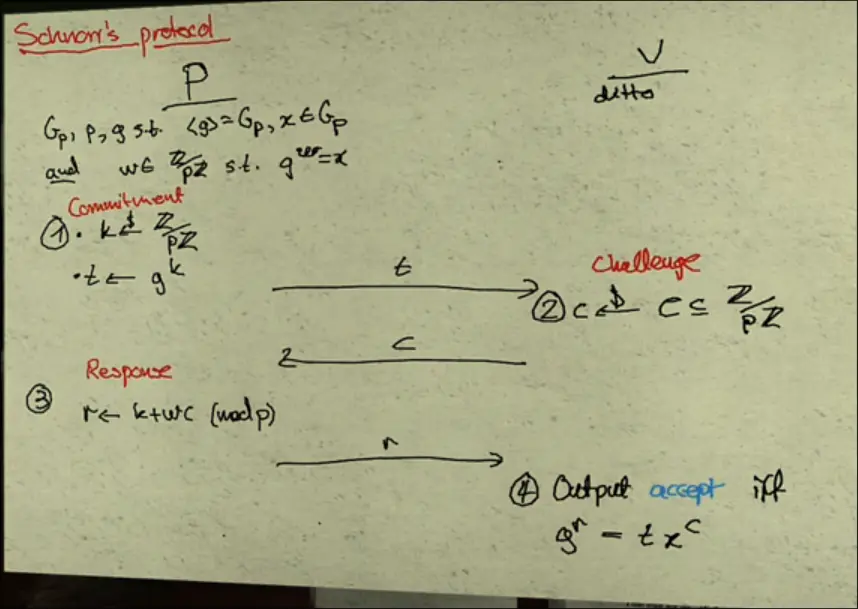 Schnorr's protocol
P
V
Gp, p, g s.t. <g> = Gp, x ∈ Gp
ditto
and w ∈ Z/pZ s.t. g^w = x
Commitment
① · k ←$ Z/pZ
· t ← g^k
t
Challenge
② c ←$ C ⊆ Z/pZ
c
Response
③ r ← k+wc (mod p)
r
④ Output accept iff
g^r = t x^c